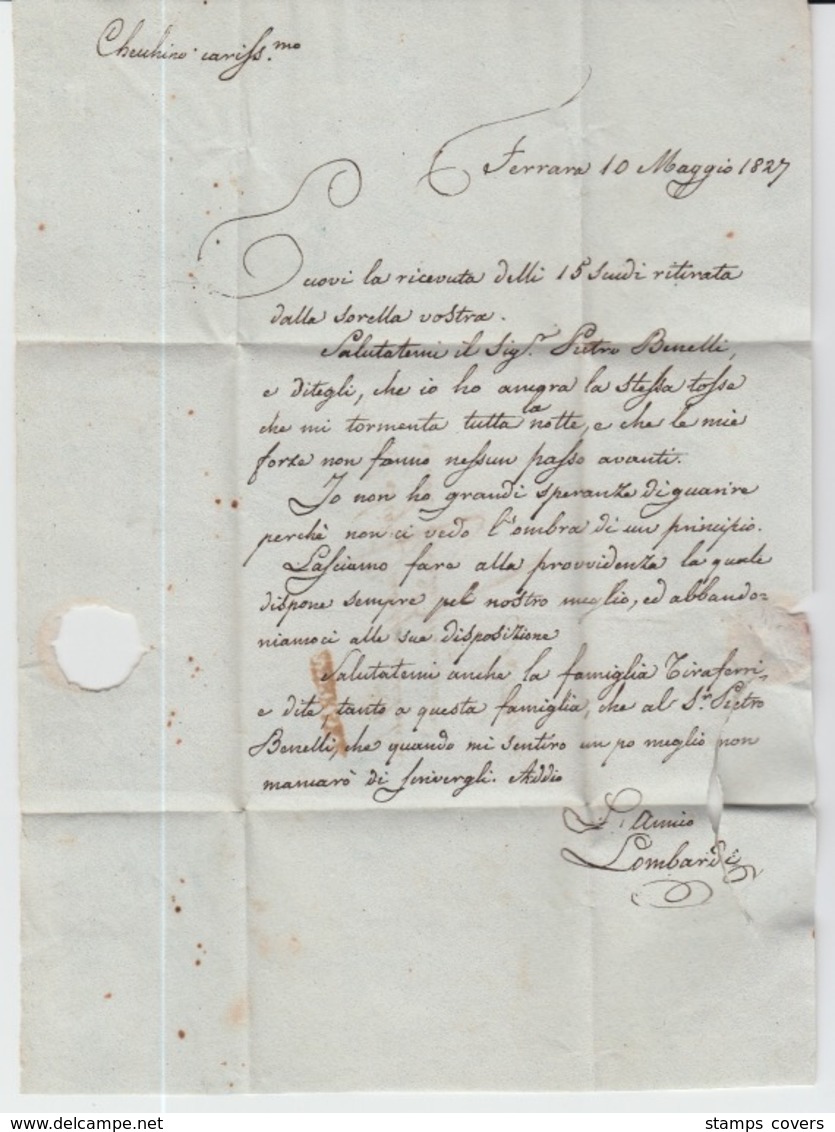 Checchino cariss.mo
Ferrara 10 Maggio 1827
Eccovi la ricevuta delli 15 Scudi ritirata
dalla sorella vostra.
Salutatemi il Sig.r Pietro Benelli,
e ditegli, che io ho ancora la stessa tosse
che mi tormenta tutta la notte, e che le mie
forze non fanno nessun passo avanti.
Io non ho grandi speranze di guarire
perchè non ci vedo l'ombra di un principio.
Lasciamo fare alla provvidenza la quale
dispone sempre pel nostro meglio, ed abbando=
niamoci alle sue disposizione
Salutatemi anche la famiglia Tiraferri,
e dite, tanto a questa famiglia, che al S.r Pietro
Benelli, che quando mi sentirò un po meglio non
mancarò di scrivergli. Addio
L'Amico
Lombardi
www.delcampe.net
stamps covers